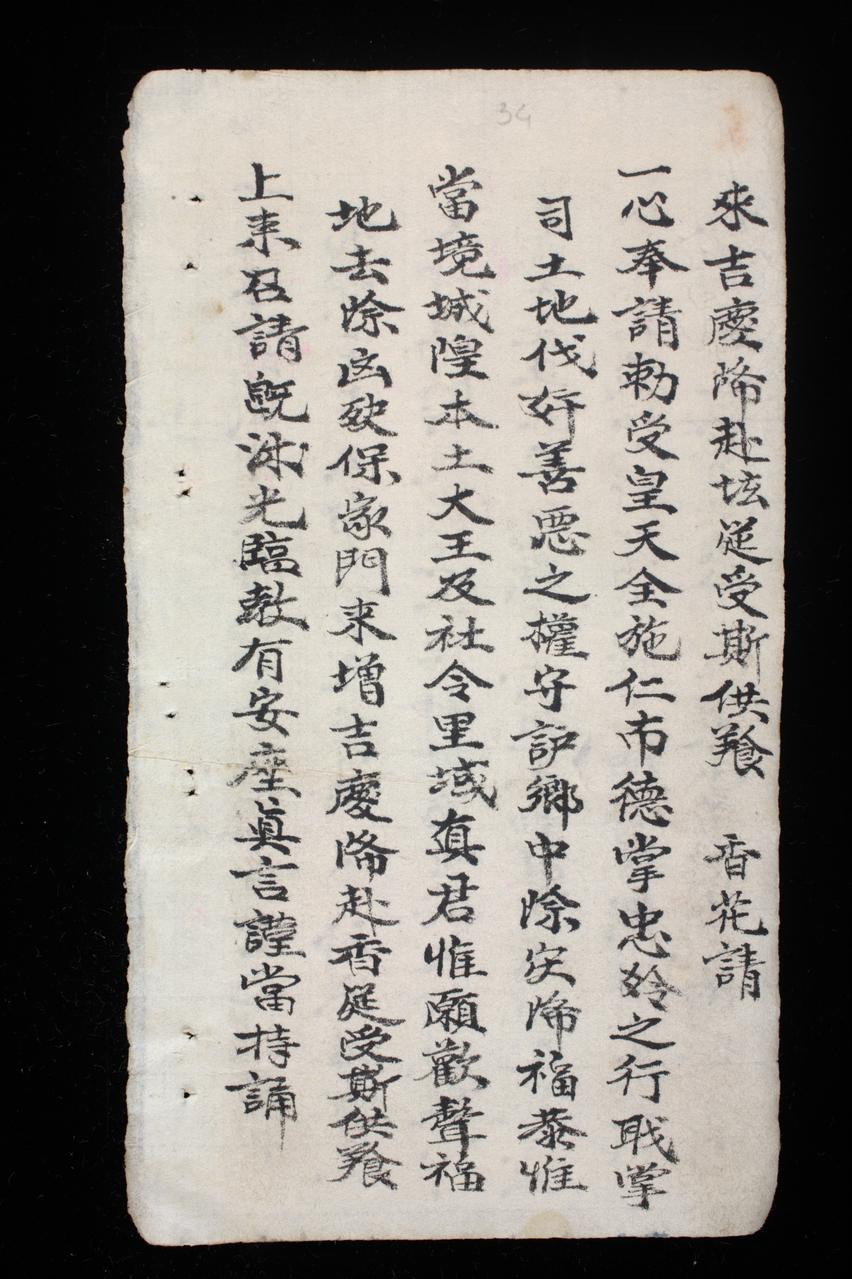 34
來吉慶降赴坛筵受斯供養 香花請
一心奉請勅受皇天全施仁布德掌忠姈之行職掌
司土地伐奸善悪之權守護鄉中除灾降福恭惟
當境城隍本土大王及社令里域真君惟願歡聲福
地去除凶殃保家門来增吉慶降赴香筵受斯供養
上来召請既沐光臨教有安座真言謹當持誦